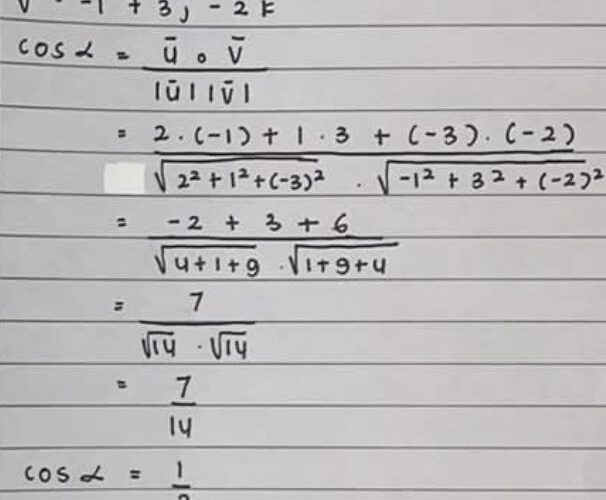 v - -1 + 3j - 2k
cos α = ū ∘ v̄
|ū| |v̄|
= 2 . (-1) + 1 . 3 + (-3) . (-2)
√2² + 1² + (-3)² . √-1² + 3² + (-2)²
= -2 + 3 + 6
√4+1+9 . √1+9+4
= 7
√14 . √14
= 7
14
cos α = 1